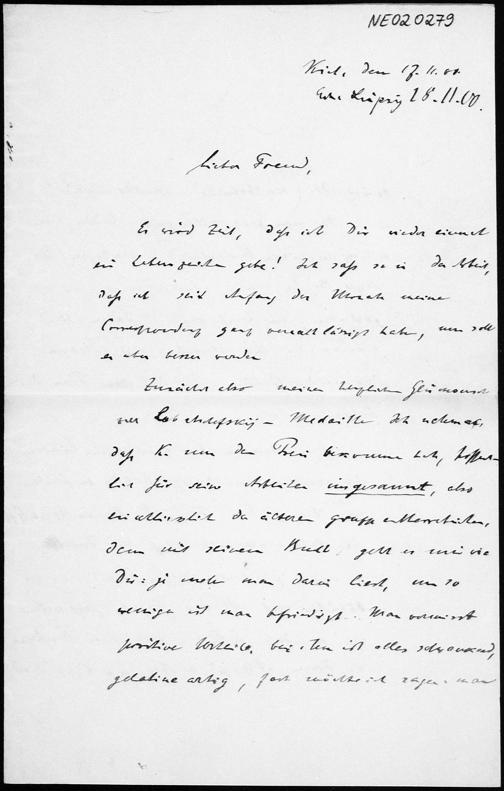 NE020279
Kiel, den 17.11.00.
Leipzig 28.11.00.
Lieber Freund,
Es wird Zeit, daß ich Dir wieder einmal
ein Lebenszeichen gebe! Ich saß so in der Arbeit,
daß ich seit Anfang des Monats meine
Correspondenz ganz vernachlässigt habe, nun soll
es aber besser werden
Zunächst also meinen herzlichen Glückwunsch
zur Lobatschefskij-Medaille. Ich nehme an,
daß K. nun den Preis bekommen hat, hoffent-
lich für seine Arbeiten insgesammt, also
einschliesslich der älteren gruppentheoretischen,
denn mit seinem Buch geht es mir wie
Dir: je mehr man darin liest, um so
weniger ist man befriedigt. Man vermisst
positive Urteile, bei ihm ist alles schwankend,
gelatineartig, fast möchte ich sagen: man